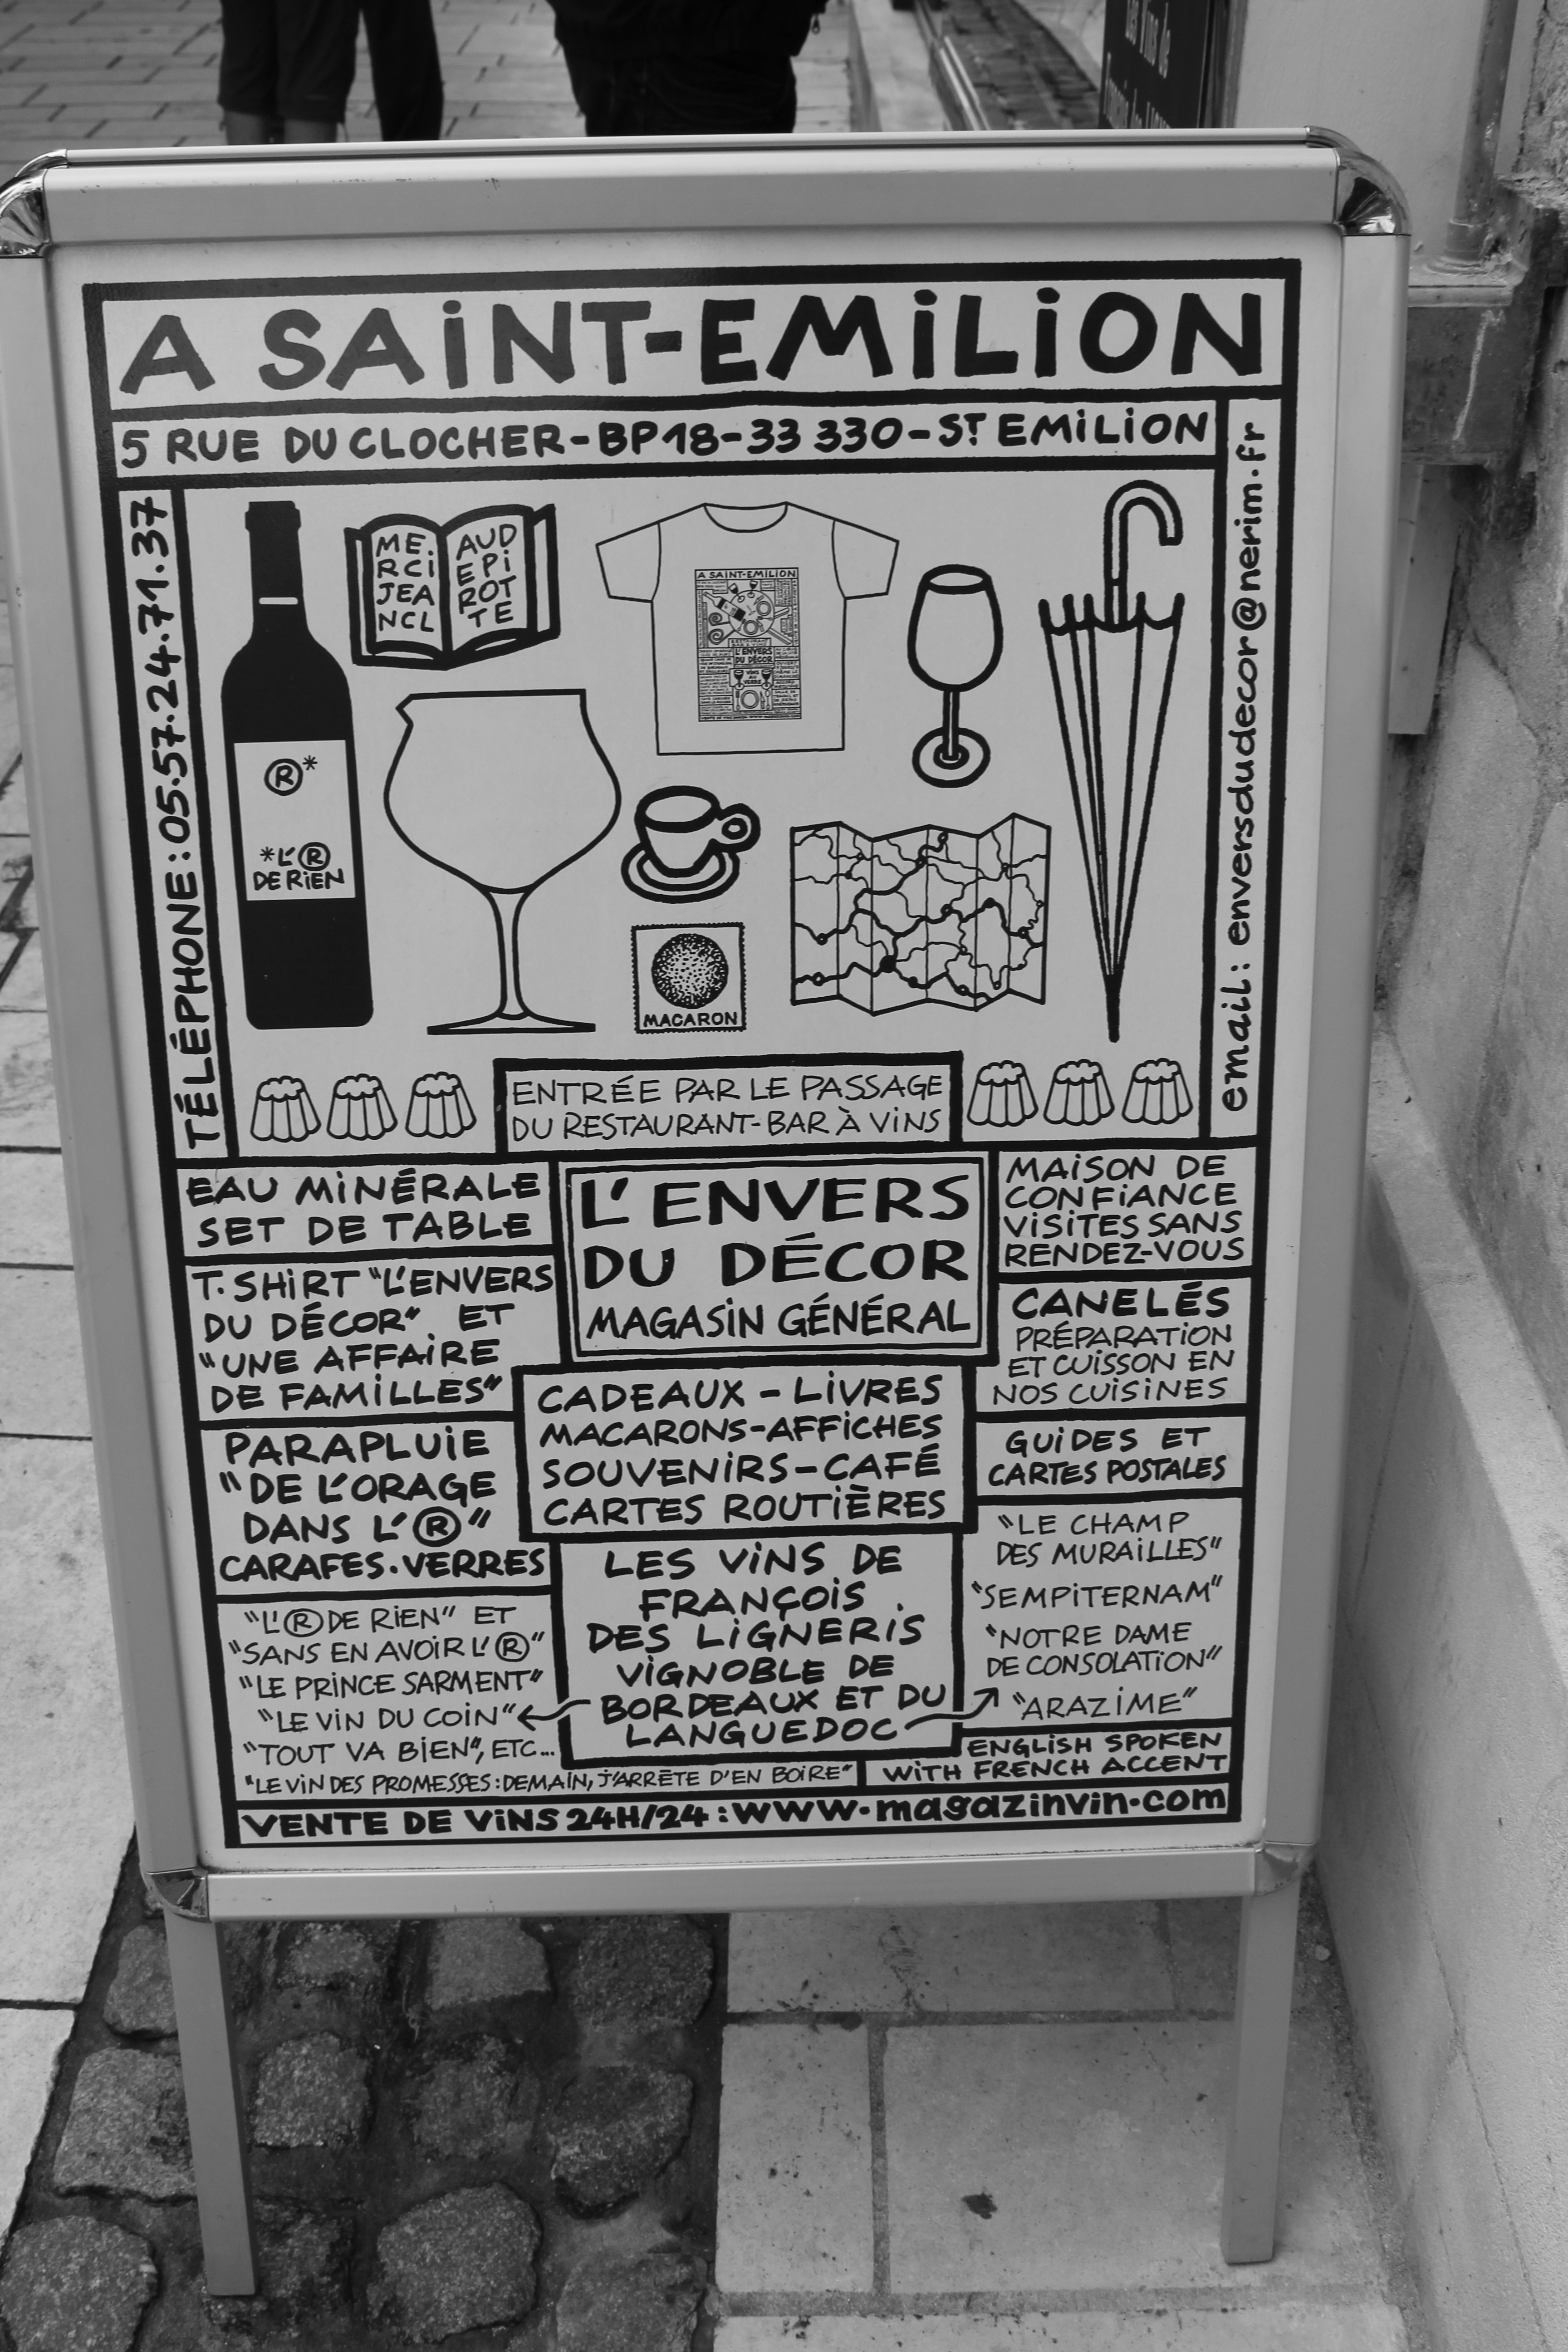 A SAiNT-EMiLiON
5 RUE DU CLOCHER-BP18-33 330-ST EMiLiON
TÉLÉPHONE: 05.57.24.71.37
email: enversdudecor@nerim.fr
ME.
RCi
JEA
NCL
AUD
EPi
ROT
TE
A SAINT-EMILION
L'ENVERS
DU DÉCOR
®*
*L'®
DE RiEN
MACARON
ENTRÉE PAR LE PASSAGE
DU RESTAURANT-BAR À ViNS
EAU MiNÉRALE
SET DE TABLE
T.SHiRT "L'ENVERS
DU DÉCOR" ET
"UNE AFFAiRE
DE FAMiLLES"
PARAPLUiE
"DE L'ORAGE
DANS L'®"
CARAFES.VERRES
"L'® DE RiEN" ET
"SANS EN AVOiR L'®"
"LE PRiNCE SARMENT"
"LE ViN DU COiN"
"TOUT VA BiEN", ETC...
"LE ViN DES PROMESSES: DEMAiN, J'ARRÊTE D'EN BOiRE"
L'ENVERS
DU DÉCOR
MAGASiN GÉNÉRAL
CADEAUX - LiVRES
MACARONS-AFFiCHES
SOUVENiRS-CAFÉ
CARTES ROUTiÈRES
LES ViNS DE
FRANÇOiS
DES LiGNERiS
ViGNOBLE DE
BORDEAUX ET DU
LANGUEDOC
MAiSON DE
CONFiANCE
ViSiTES SANS
RENDEZ-VOUS
CANELÉS
PRÉPARATiON
ET CUiSSON EN
NOS CUiSiNES
GUiDES ET
CARTES POSTALES
"LE CHAMP
DES MURAiLLES"
"SEMPiTERNAM"
"NOTRE DAME
DE CONSOLATiON"
"ARAZiME"
ENGLiSH SPOKEN
WiTH FRENCH ACCENT
VENTE DE ViNS 24H/24 : www.magazinvin.com